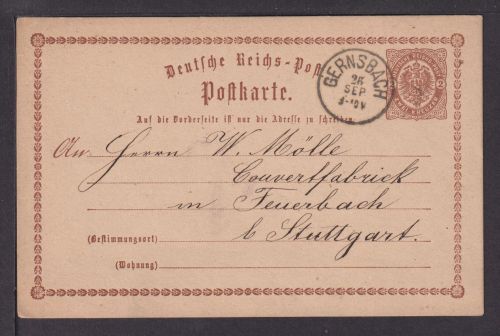 Deutsche Reichs-Post
Postkarte.
GERNSBACH
26
SEP
Auf die Vorderseite ist nur die Adresse zu schreiben.
An Herrn W. Mölle
Couvertfabrick
in Feuerbach
(Bestimmungsort) b Stuttgart.
(Wohnung)